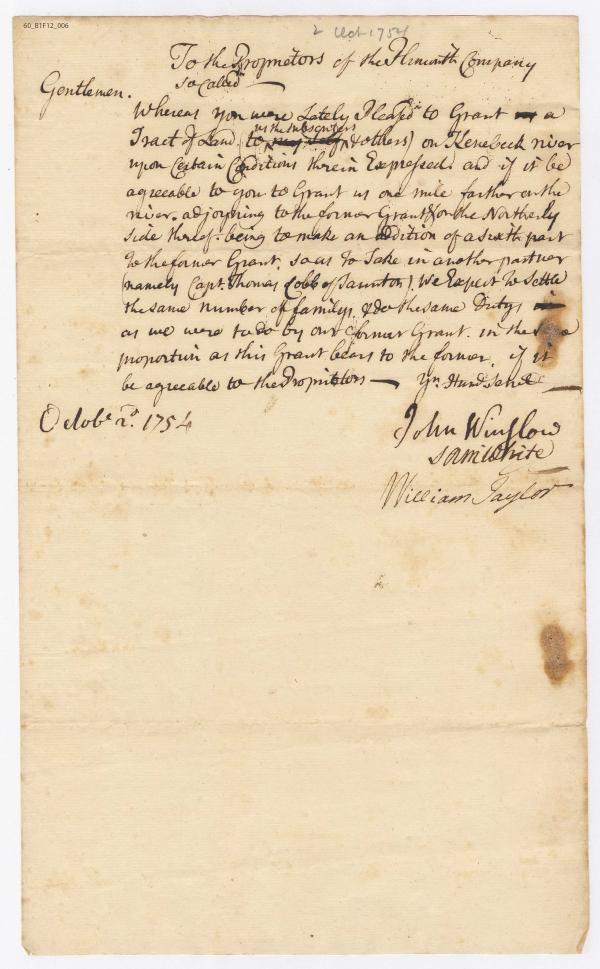 60_B1F12_006
2 Oct 1754
To the Proprietors of the Plimouth Company
so Called
Gentlemen.
Whereas you were Lately Pleasd to Grant a
us the subscribers
Tract of Land (to & others) on Kenebeck river
upon Certain Conditions therein Expressed. and if it be
agreeable to you to Grant us one mile farther on the
river. adjoyning to the former Grant & on the Northerly
side thereof. being to make an addition of a sixth part
to the former Grant. so as to Take in another partner
(namely Capt. Thomas Cobb of Taunton). We Expect to settle
the same number of familys. & do the same Dutys
as we were to do by our former Grant. in the
proportion as this Grant bears to the former. if it
be agreeable to the Proprietors — yr. Hum. Servts
Octobr. 2d. 1754
John Winslow
Saml White
William Taylor